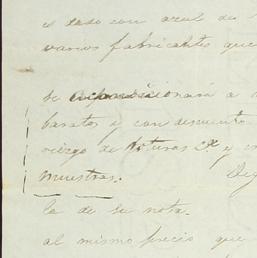 es todo con azul de
varios fabricantes que
se aficionará a
baratos y con descuento
riesgo de Asturas Cª y
muestras. Dej
la de se nota.
al mismo precio que